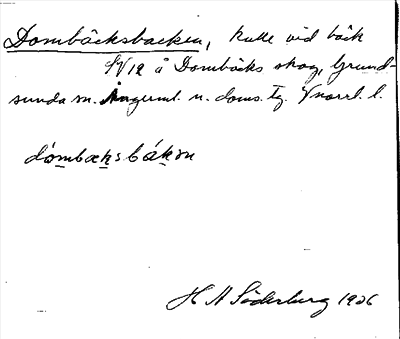 Dombäcksbacken, kulle vid bäck
5/12 å Dombäcks skog, Grund-
sunda sn. Ångerml. n. doms. tg. Vnorrl. l.
dómbæksbákən
H A Söderberg 1926